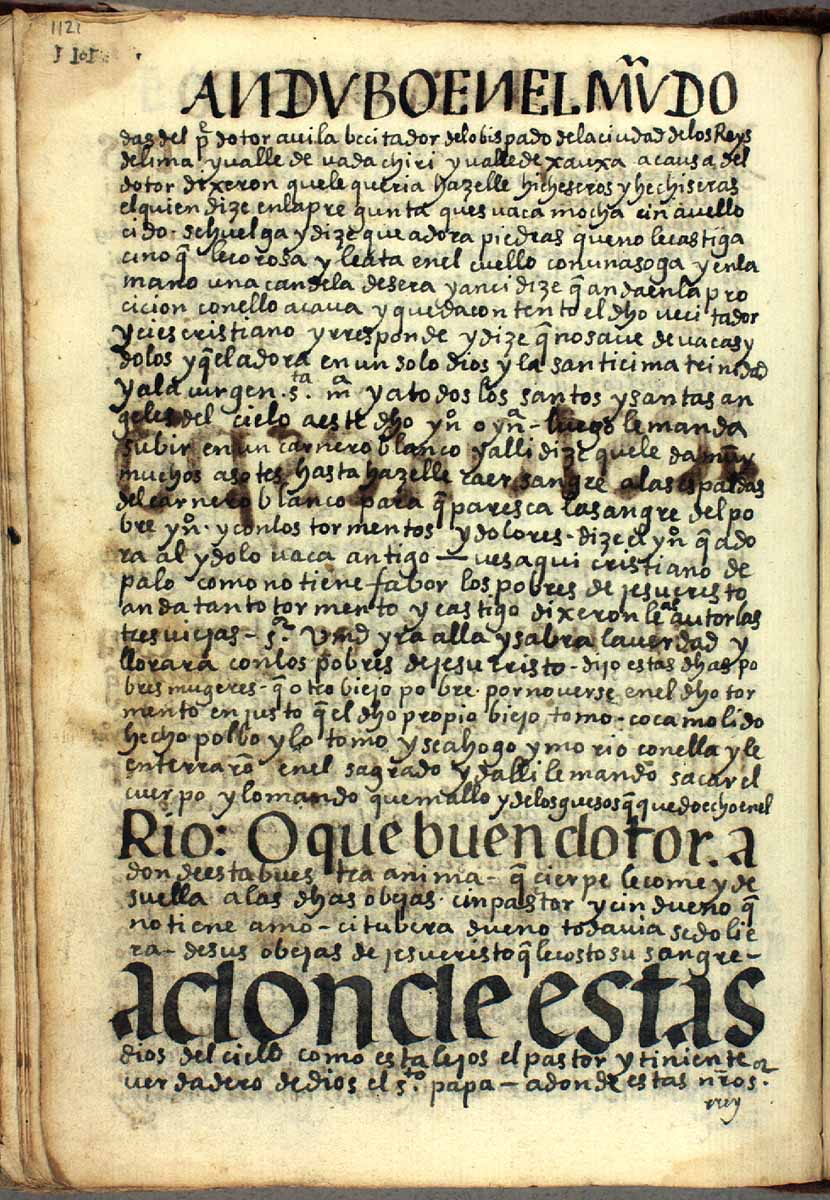 1121
1101
ANDVBOENELMV̈DO
das del pe dotor auila becitador del obispado de la ciudad de los Reys
de lima y ualle de uadachiri y ualle de xauxa a causa del
dotor dixeron que le queria hazelle hicheseros y hechiseras
el quien dize en la pregunta ques uaca mocha cin auello
cido - se huelga y dize que adora piedras que no le castiga
cino q̃ le corosa y le ata en el cuello con una soga y en la
mano una candela de sera y anci dize q̃ anda en la pro
cicion con ello acaua y queda contento el dho uecitador
y ci es cristiano y rresponde y dize q̃ no saue de uacas y
dolos y q̃ el adora en un solo dios y la santicima trinidad
y a la uirgen . sta ma y a todos los santos y santas an
geles del cielo a este dho yno o yna - luego le manda
subir en un carnero blanco y alli dize que le da muy
muchos asotes hasta hazelle caer sangre a las espaldas
del carnero blanco para q̃ paresca la sangre del po
bre yno . y con los tormentos y dolores - dize el yno q̃ ado
ra al ydolo uaca antigo — ues aqui cristiano de
palo como no tiene fabor los pobres de jesucristo
anda tanto tormento y castigo dixeron le as autor las
tres uiejas - sr Vmd yra alla y sabra la uerdad y
llorara con los pobres de jesucristo - dijo estas dhas po
bres mugeres - q̃ otro biejo pobre . por no uerse en el dho tor
mento enjusto q̃ el dho propio biejo tomo - coca molido
hecho polbo y lo tomo y se ahogo y morio con ella y le
enterraro en el sagrado y dalli le mando sacar el
cuerpo y lo mando quemallo y de los guesos q̃ quedo echo en el
Rio: O que buen dotor. a
donde esta bues tra anima - q̃ cierpe le come y de
suella a las dhas obejas . cin pastor y cin dueno q̃
no tiene amo - ci tubera dueno todauia se dolie
ra - de sus obejas de jesucristo q̃ le costo su sangre -
adonde estas
dios del cielo como esta lejos el pastor y tiniente
uerdadero de dios el sto papa - adonde estas nros. or
rrey